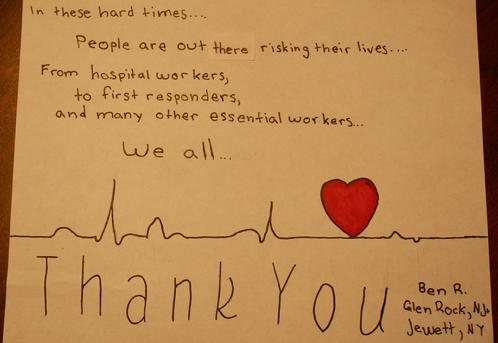 In these hard times....
People are out there risking their lives....
From hospital workers,
to first responders,
and many other essential workers...
We all...
Thank You
Ben R.
Glen Rock, NJ+
Jewett, NY